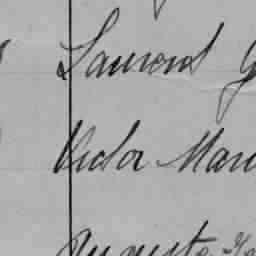 Laurent G
Victor Mari
Auguste